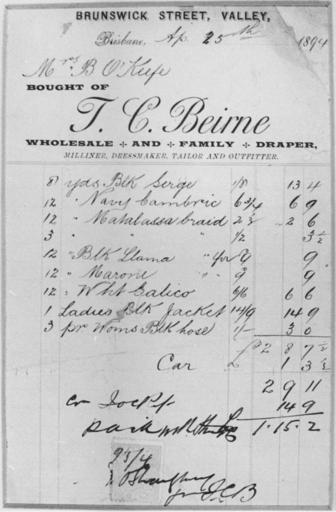 BRUNSWICK STREET, VALLEY,
Brisbane, Ap 25th 1894
Mrs B O'Keefe
BOUGHT OF
T. C. Beirne
WHOLESALE AND FAMILY DRAPER,
MILLINER, DRESSMAKER, TAILOR AND OUTFITTER.
8 yds Blk Serge 1/8 13 4
12 " Navy Cambric 6¾ 6 9
12 " Matalassa braid 2½ 2 6
3 " 1/2 3½
12 " Blk Llama 9 9
12 " Marone " 9 9
12 " Wht Calico 6/6 6 6
1 Ladies Blk Jacket 14/9 14 9
3 pr Woms Blk hose 1/- 3 0
£ 2 8 7½
Car £ 1 3½
2 9 11
cr Jacket 14 9
paid 1.15.2
TCB